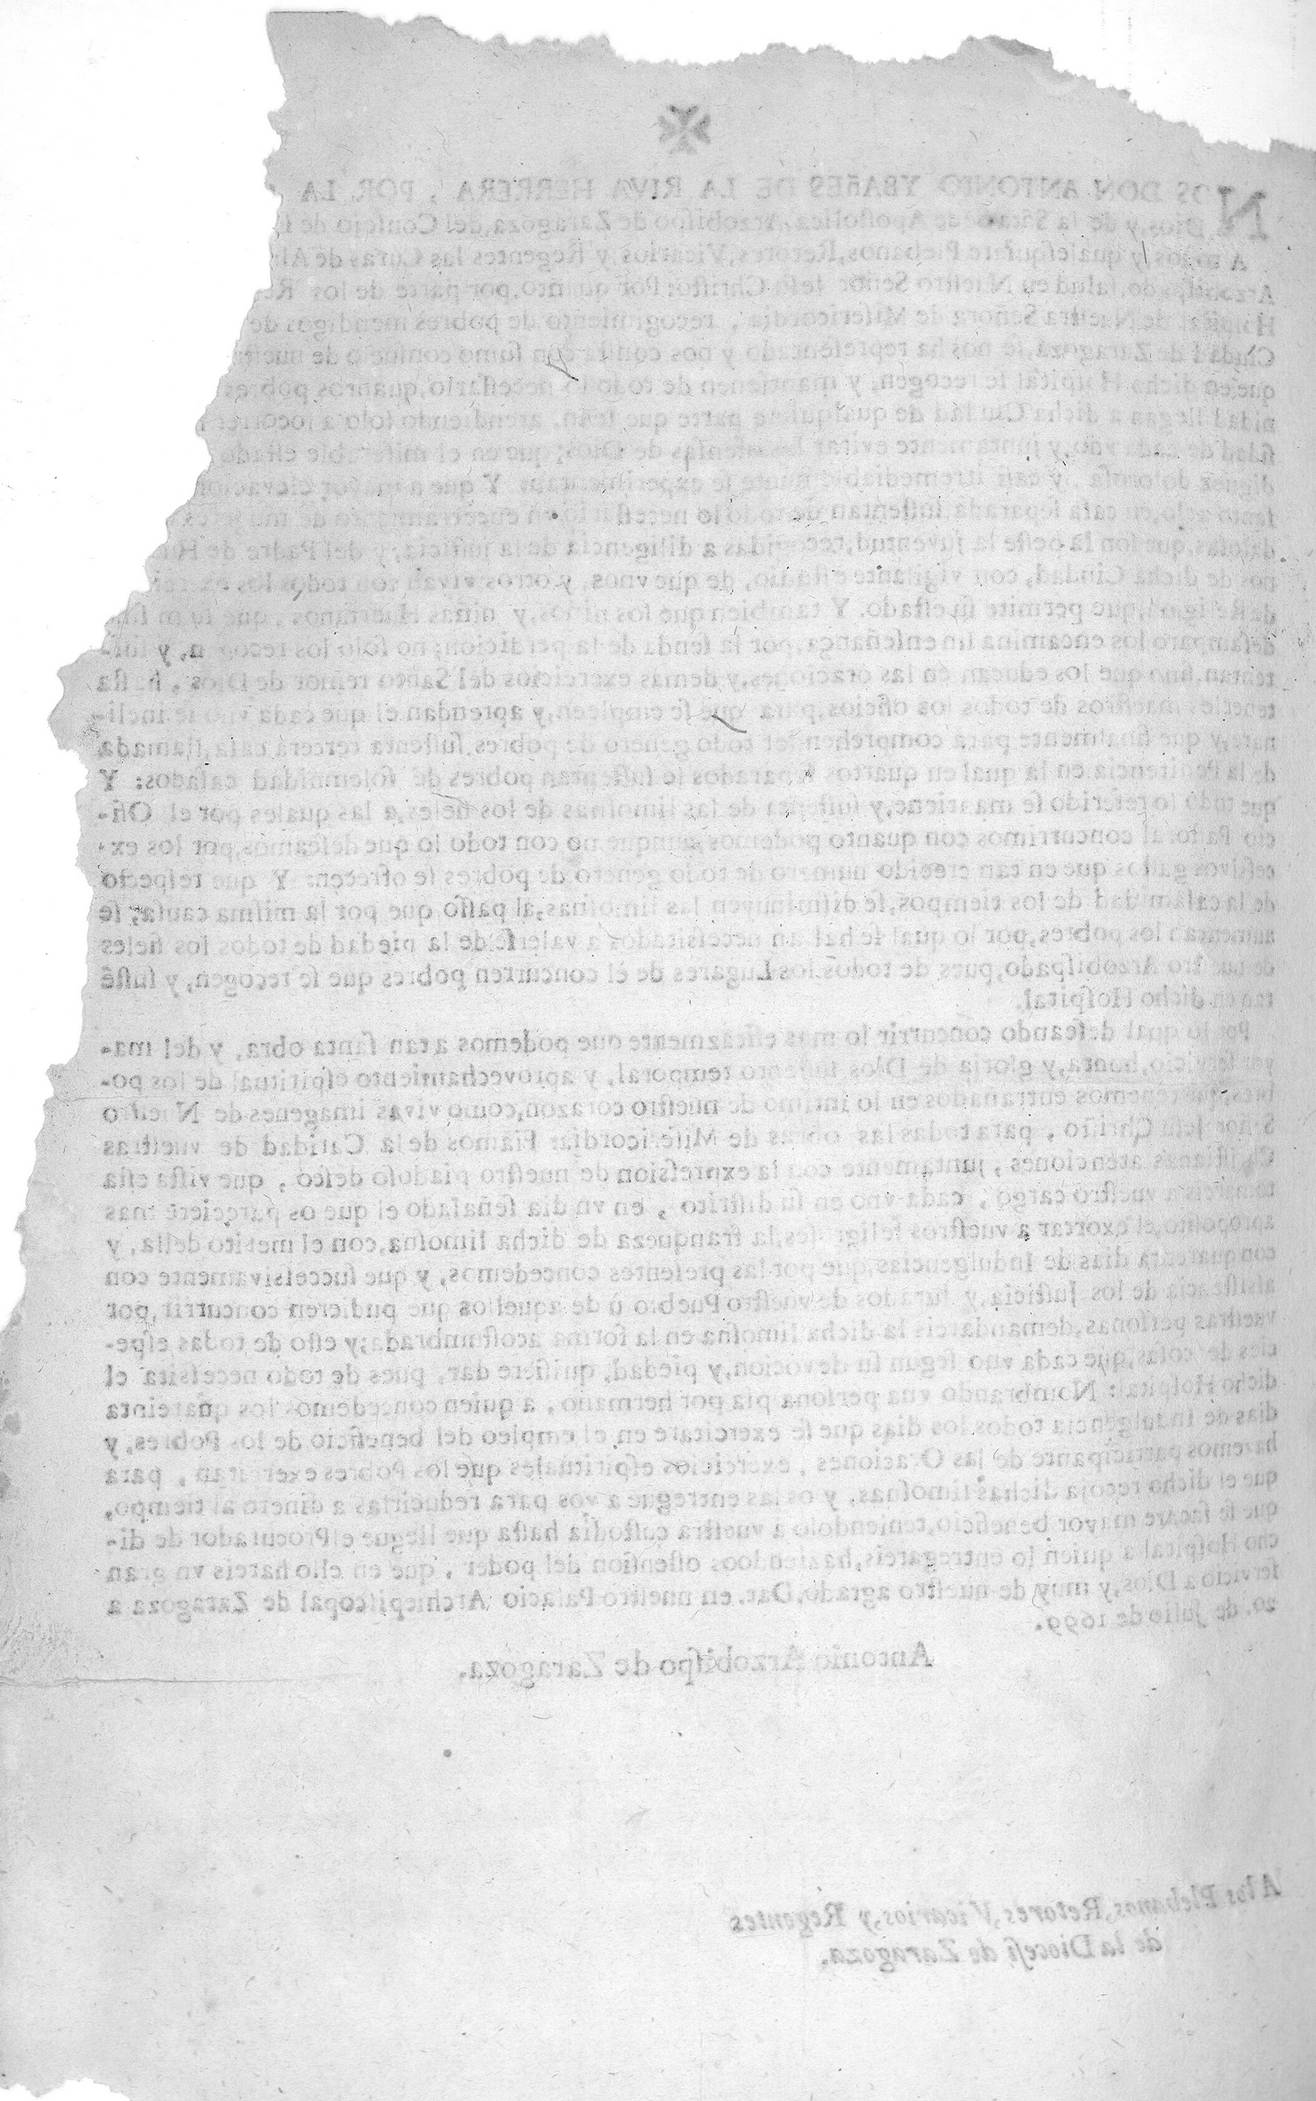 NOS DON ANTONIO YBAñES DE LA RIVA HERRERA, POR LA
Dios, y de la Sãta Sede Apostolica, Arzobispo de Zaragoza, del Consejo de
A todos, y qualesquiere Plebanos, Retores, Vicarios, y Regentes las Curas de
Arzobispado, salud en Nuestro Señor Jesu Christo: Por quanto, por parte de los
Hospital de Nuestra Señora de Misericordia, recogimiento de pobres mendigos de
Ciudad de Zaragoza, se nos ha representado y nos consta con sumo consuelo de
que en dicho Hospital se recogen, y mantienen de todo lo necessario, quantos pobres
nidad llegan a dicha Ciudad de qualquiere parte que sean, atendiendo solo a socorrer
sidad de cada vno, y juntamente evitar las ofensas de Dios, que en el miserable estado
diguez dolorosa, y casi irremediablemente se experimentan: Y que a mayor elevacion
santo zelo, en casa separada sustentan de todo lo necessario, en encerramiento de mugeres
dalosas, que son la peste la juventud, recogidas a diligencia de la justicia, y del Padre de
nos de dicha Ciudad, con vigilante estudio, de que vnos, y otros vivan con todos los
de Religion, que permite su estado. Y tambien que los niños, y niñas Huerfanos, que su
desamparo los encamina sin enseñança, por la senda de la perdicion; no solo los recogen, y sus-
tentan, sino que los educan en las oraciones, y demas exercicios del Santo temor de Dios, hasta
tenerles maestros de todos los oficios, para que se empleen, y aprendan el que cada vno se incli-
nare, y que finalmente para comprehender todo genero de pobres, sustenta tercera casa, llamada
de la Penitencia, en la qual en quartos separados se sustentan pobres de solemnidad casados: Y
que todo lo referido se mantiene, y sustenta de las limosnas de los fieles, a las quales por el Ofi-
cio Pastoral concurrimos con quanto podemos, aunque no con todo lo que deseamos, por los ex-
cessivos gastos que en tan crecido numero de todo genero de pobres se ofrecen: Y que respecto
de la calamidad de los tiempos, se disminuyen las limosnas, al passo que por la misma causa, se
aumentan los pobres, por lo qual se hallan necessitados a valerse de la piedad de todos los fieles
de nuestro Arzobispado, pues de todos los Lugares de él concurren pobres que se recogen, y sustẽ
tan en dicho Hospital.
Por lo qual deseando concurrir lo mas eficazmente que podemos a tan santa obra, y del ma-
yor servicio, honra, y gloria de Dios sustento temporal, y aprovechamiento espiritual de los po-
bres, que tenemos entrañados en lo intimo de nuestro corazon, como vivas imagenes de Nuestro
Señor Jesu Christo, para todas las obras de Misericordia: Fiamos de la Caridad de vuestras
Christianas atenciones, juntamente con la expression de nuestro piadoso deseo, que vista esta
tomareis a vuestro cargo, cada vno en su distrito, en vn dia señalado el que os pareciere mas
aproposito, el exortar a vuestros feligreses, la franqueza de dicha limosna, con el merito della, y
con quarenta dias de Indulgencias, que por las presentes concedemos, y que successivamente con
assistencia de los Justicia, y Jurados de vuestro Pueblo ù de aquellos que pudieren concurrir, por
vuestras personas, demandareis la dicha limosna en la forma acostumbrada; y esto de todas espe-
cies de cosas, que cada vno segun su devocion, y piedad, quisiere dar, pues de todo necessita el
dicho Hospital: Nombrando vna persona pia por hermano, a quien concedemos los quareinta
dias de Indulgencia todos los dias que se exercitare en el empleo del beneficio de los Pobres, y
hazemos participante de las Oraciones, exercicios espirituales que los Pobres exercitan, para
que el dicho recoja dichas limosnas, y os las entregue a vos para reducirlas a dinero al tiempo,
que se sacare mayor beneficio, teniendolo a vuestra custodia hasta que llegue el Procurador de di-
cho Hospital a quien lo entregareis, haziendoos ostension del poder, que en ello hareis vn gran
servicio a Dios, y muy de nuestro agrado, Dat. en nuestro Palacio Archiepiscopal de Zaragoza a
20. de Julio de 1699.
Antonio Arzobispo de Zaragoza.
A los Plebanos, Retores, Vicarios, y Regentes
de la Diocesi de Zaragoza.